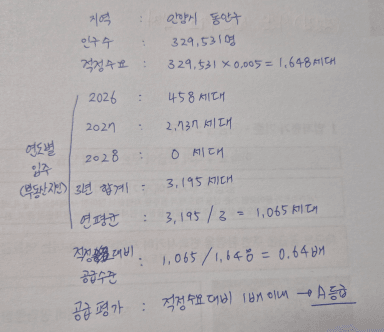 지역 : 안양시 동안구
인구수 : 329,531명
적정수요 : 329,531 × 0.005 = 1,648세대
연도별 입주 (부동산지인)
2026 : 458 세대
2027 : 2,737 세대
2028 : 0 세대
3년 합계 : 3,195 세대
연평균 : 3,195 / 3 = 1,065 세대
적정수요대비 공급수준 : 1,065 / 1,648 = 0.64배
공급 평가 : 적정수요 대비 1배 이내 → A등급